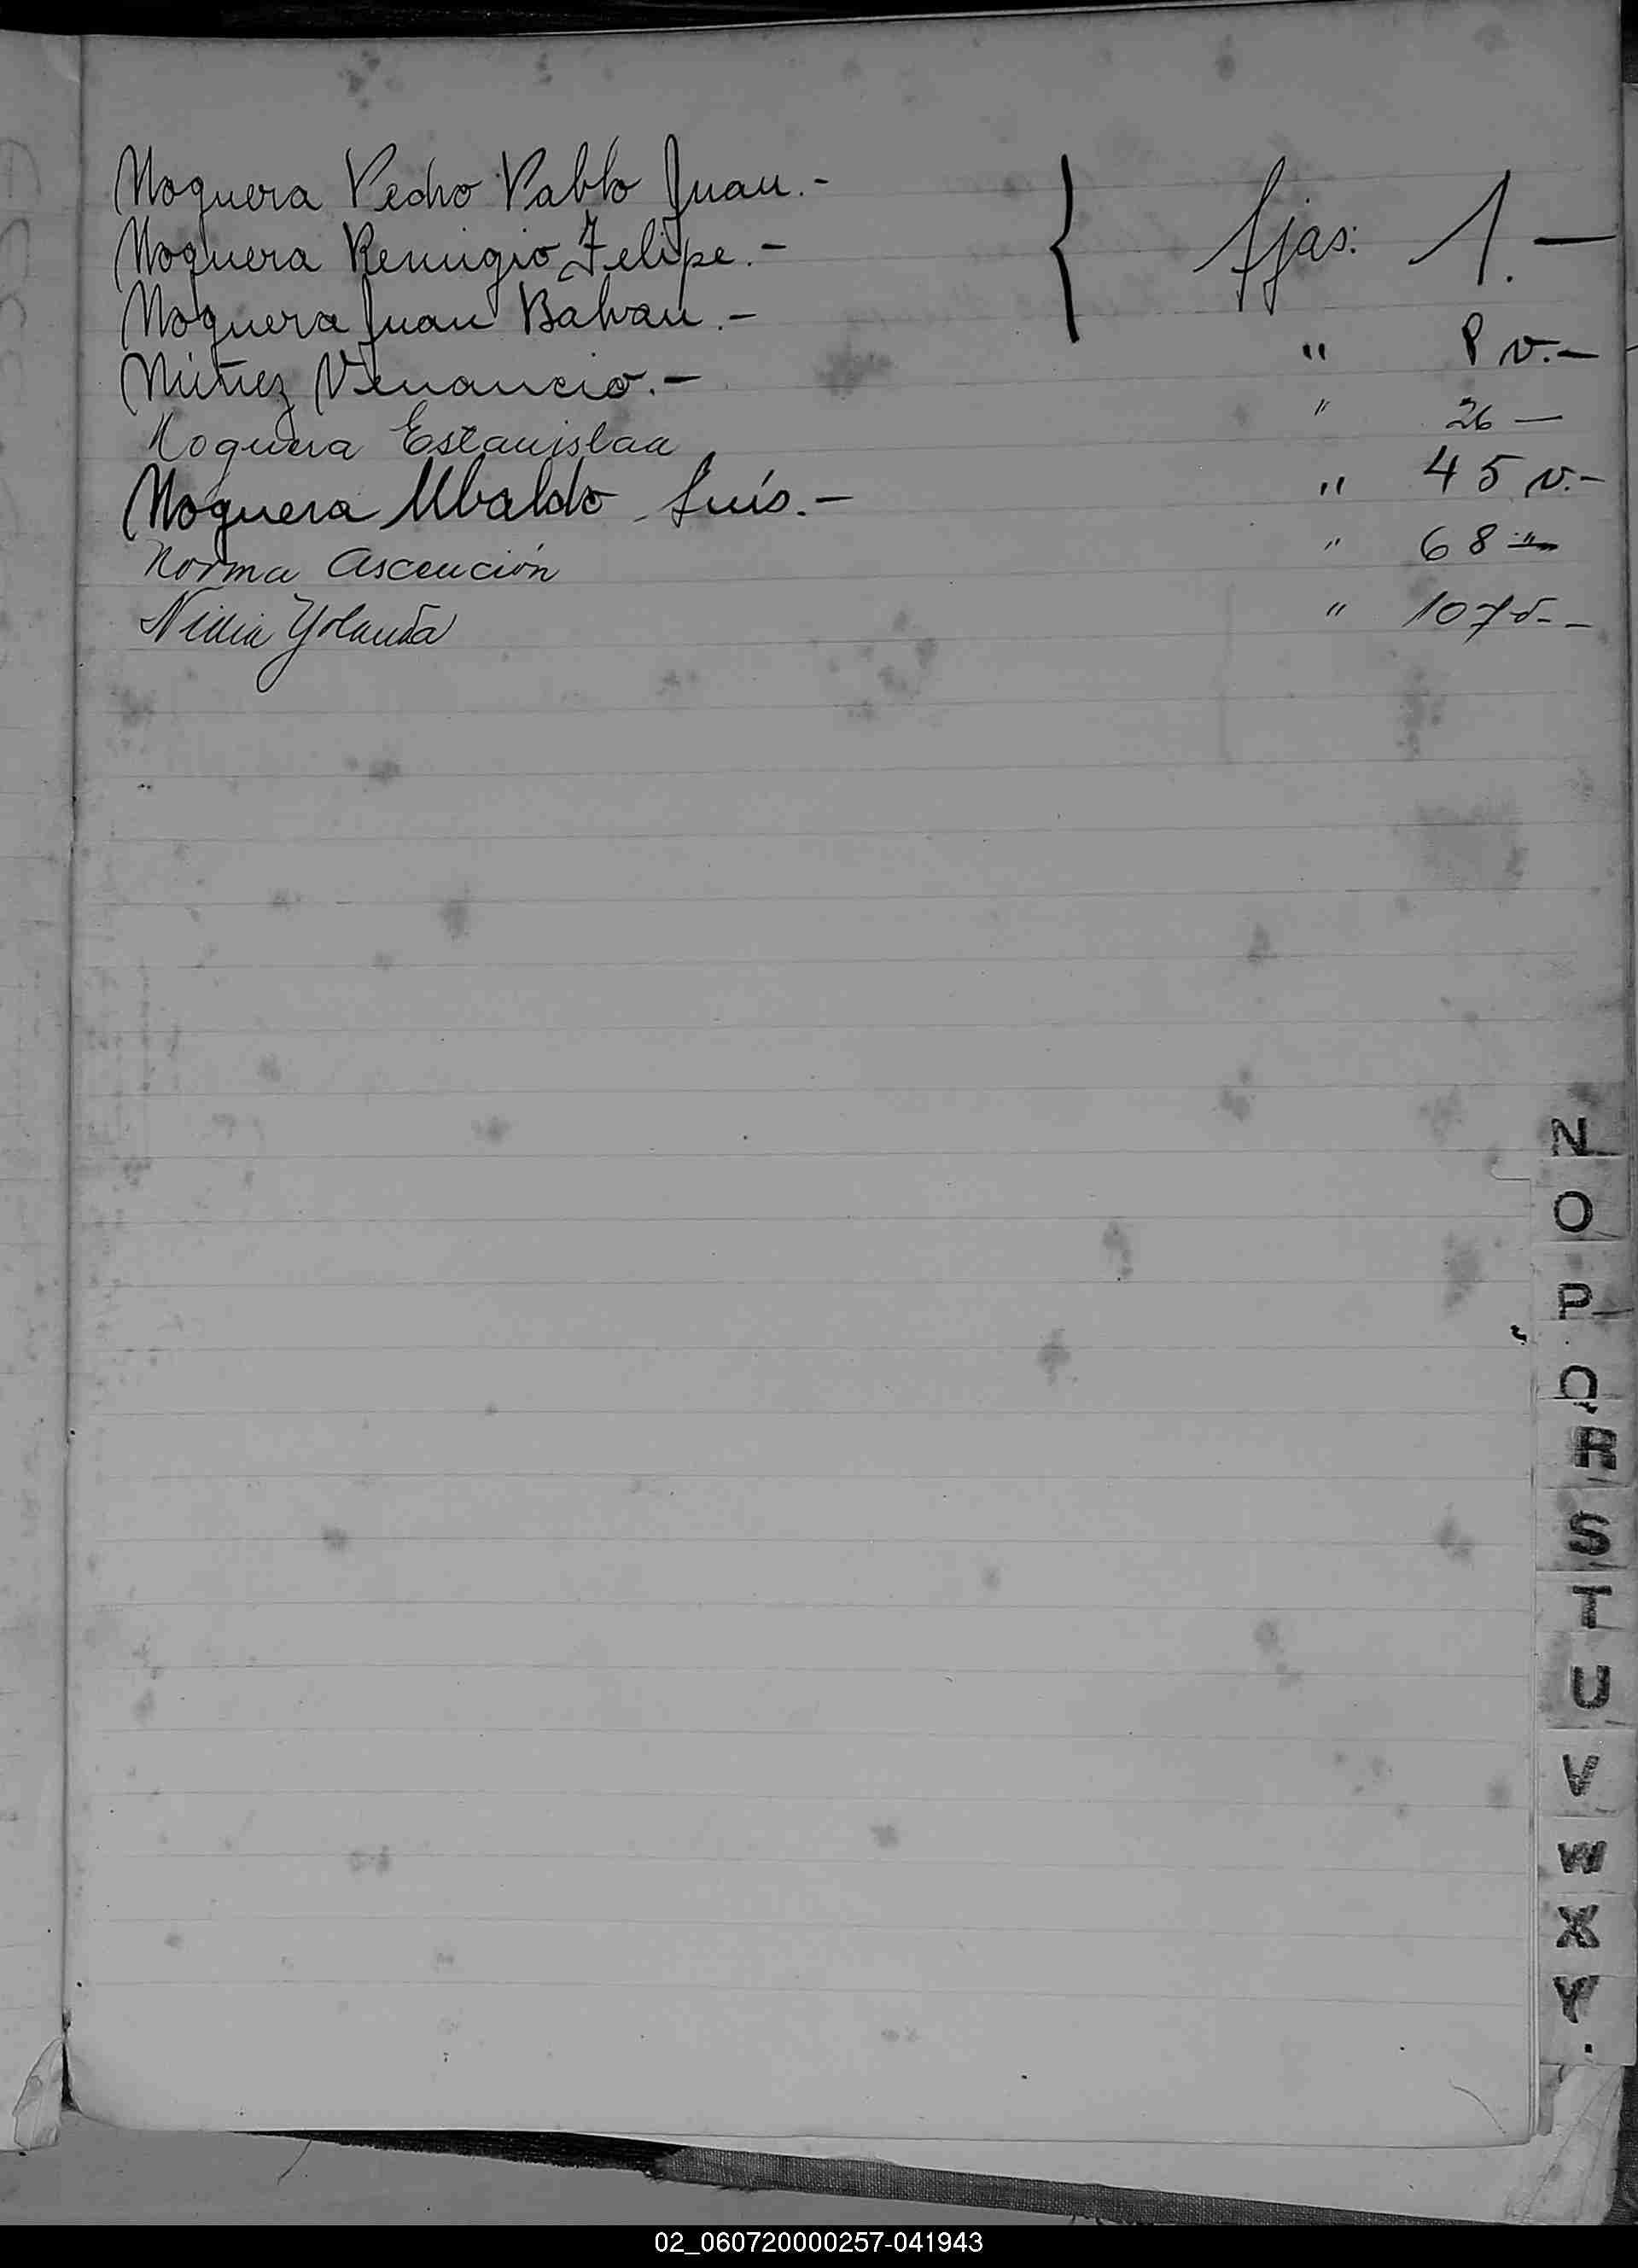 Noguera Pedro Pablo Juan.-
Noguera Remigio Felipe.- { fjas: 1.—
Noguera Juan Balvan.-
Núñez Venancio.- " 8 v.—
Noguera Estanislaa " 26 —
Noguera Ubaldo Luís.- " 45 v.-
Norma Ascención " 68 —
Yolanda " 107
N
O
P
Q
R
S
T
U
V
W
X
Y
02_060720000257-041943